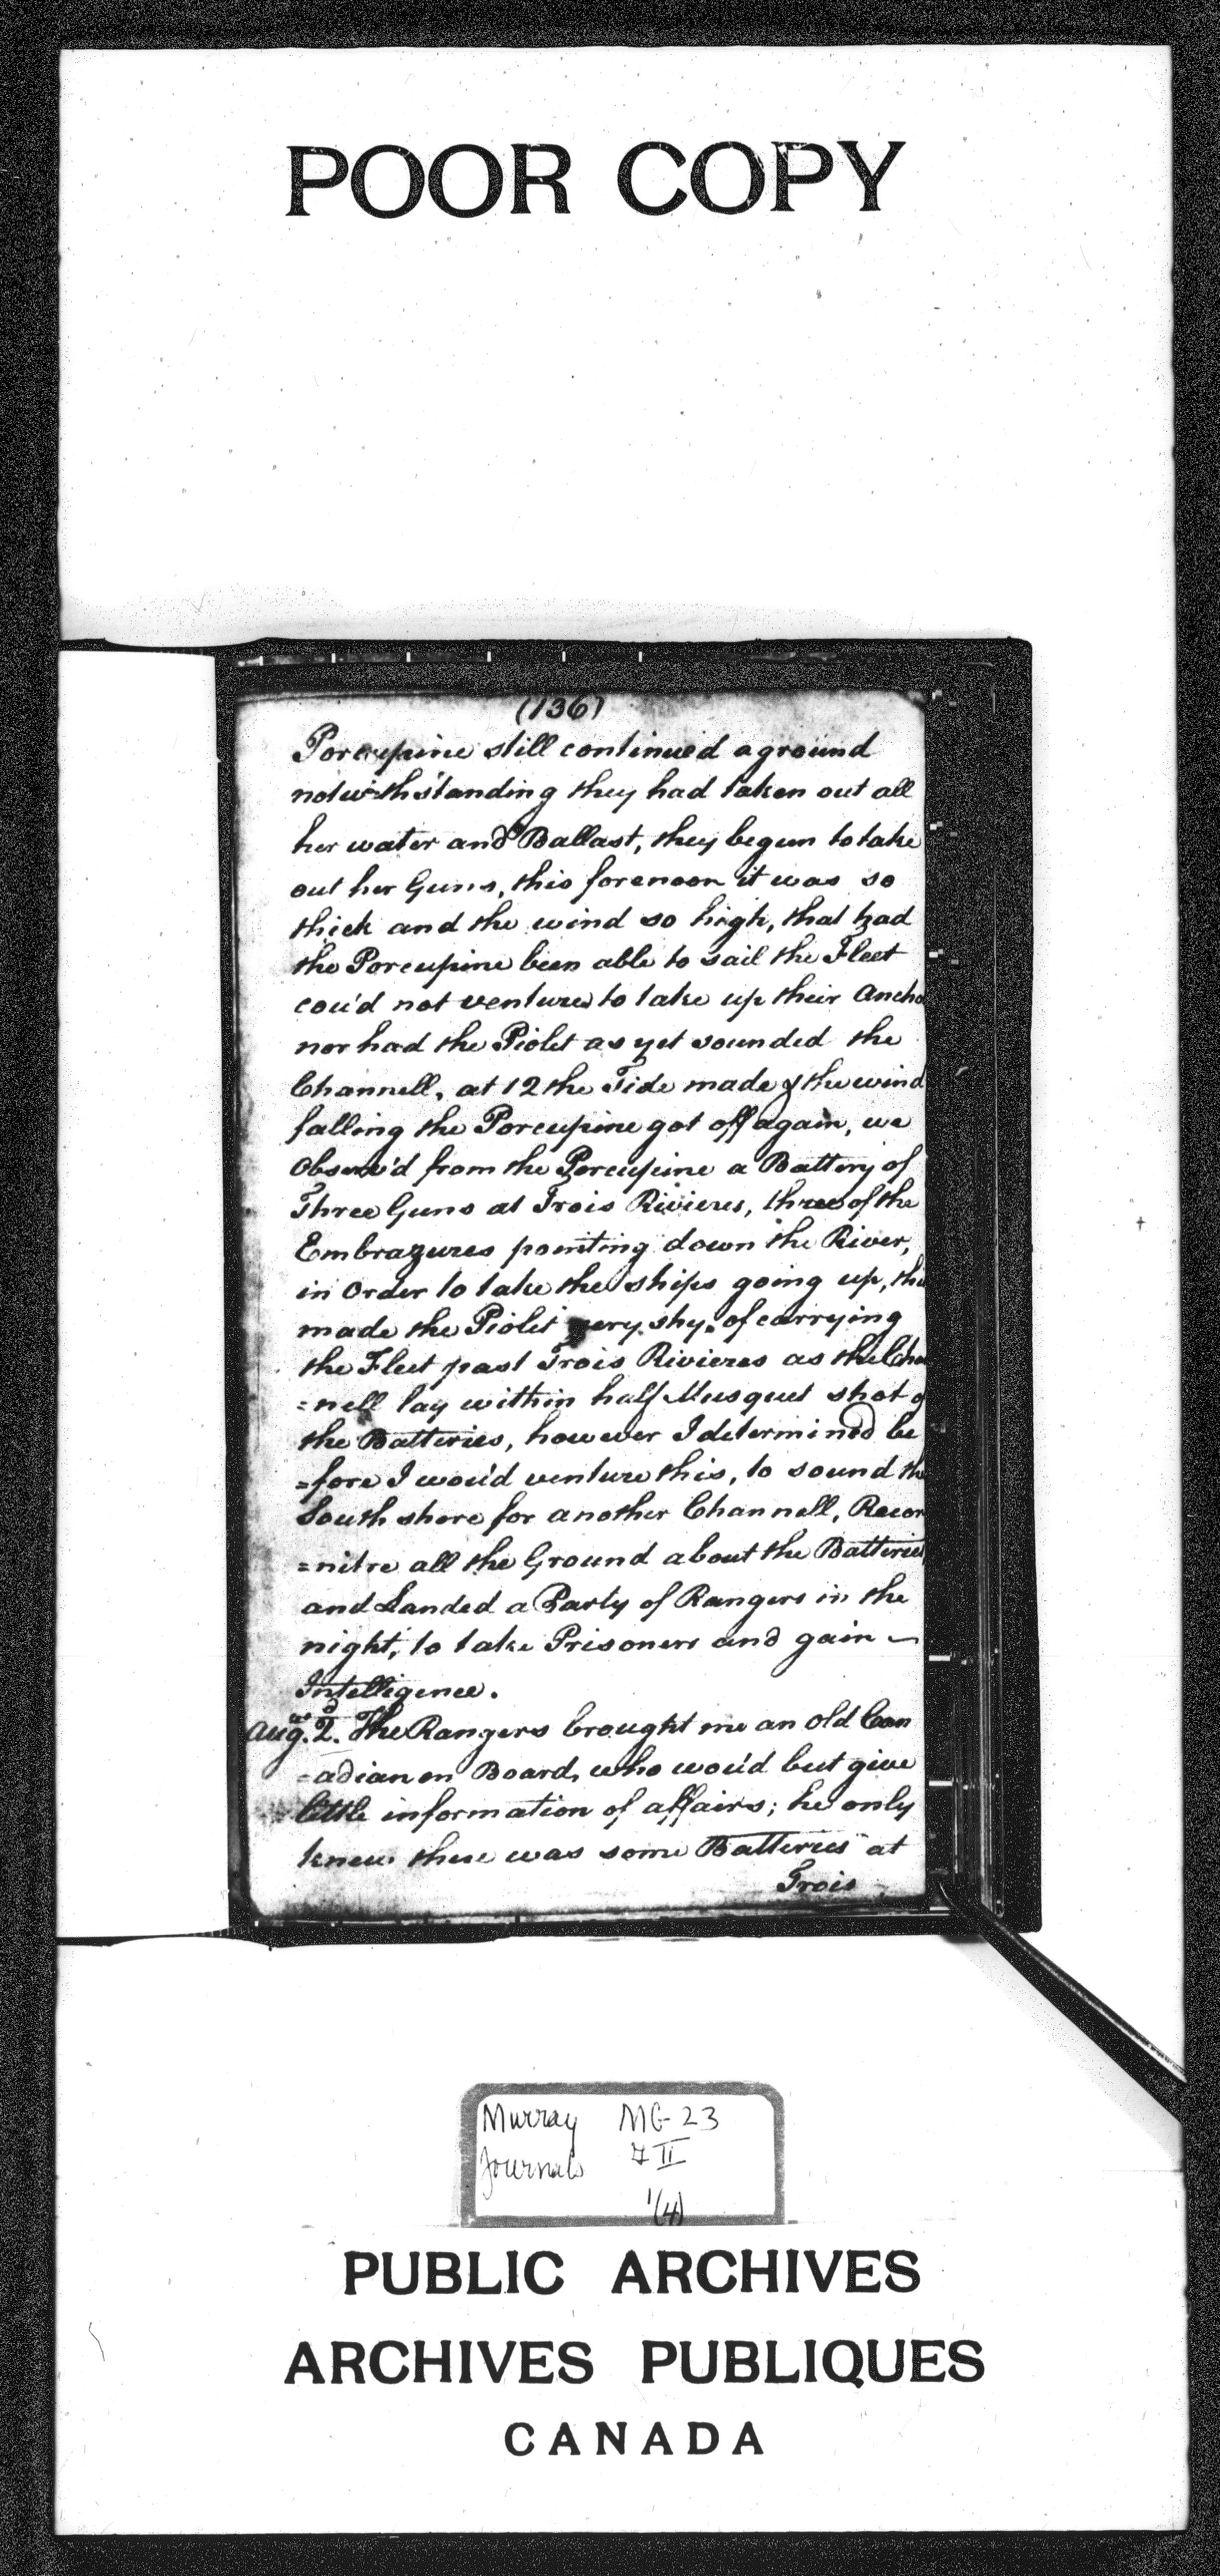 POOR COPY
(136)
Porcupine still continued aground
notwithstanding they had taken out all
her water and Ballast, they begun to take
out her Guns, this forenoon it was so
thick and the wind so high, that had
the Porcupine been able to sail the Fleet
cou'd not venture to take up their Ancho
nor had the Piolet as yet sounded the
Channell, at 12 the Tide made & the wind
falling the Porcupine got off again, we
Observ'd from the Porcupine a Battery of
Three Guns at Trois Rivieres, three of the
Embrazures pointing down the River,
in Order to take the ships going up, thi
made the Piolet very shy of carrying
the Fleet past Trois Rivieres as the Cha
=nell lay within half Musquet shot o
the Batteries, however I determined be
=fore I wou'd venture this, to sound the
South shore for another Channell, Recon
=nitre all the Ground about the Batteries
and Landed a Party of Rangers in the
night, to take Prisoners and gain
Intelligence.
Aug.st 2.d The Rangers brought me an old Can
=adian on Board, who wou'd but give
little information of affairs; he only
knew there was some Batteries at
Trois
Murray MG 23
Journals II
1(4)
PUBLIC ARCHIVES
ARCHIVES PUBLIQUES
CANADA